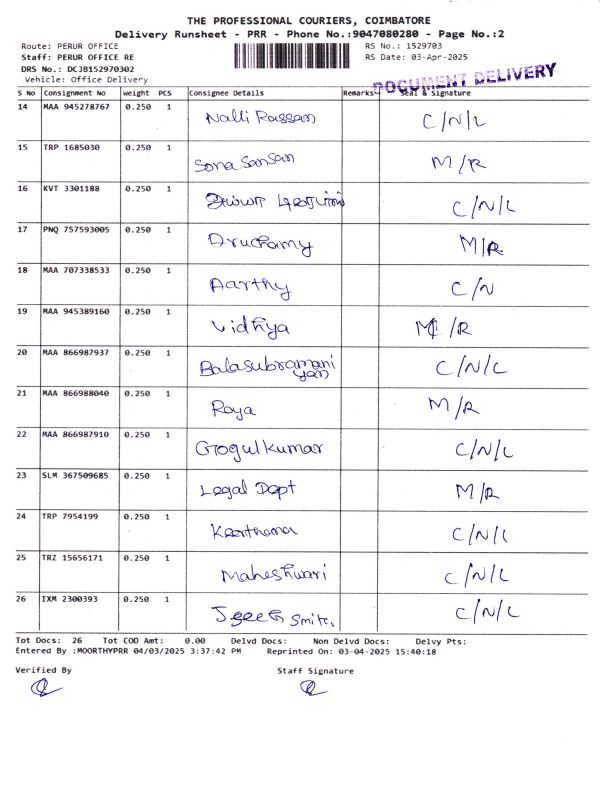 THE PROFESSIONAL COURIERS, COIMBATORE
Delivery Runsheet - PRR - Phone No.:9047080280 - Page No.:2
Route: PERUR OFFICE
RS No.: 1529703
Staff: PERUR OFFICE RE
RS Date: 03-Apr-2025
DRS No.: DCJB152970302
Vehicle: Office Delivery
DOCUMENT DELIVERY
S No Consignment No Weight PCS Consignee Details Remarks Seal & Signature
14 MAA 945278767 0.250 1 Nalli Rassam C/N/L
15 TRP 1685030 0.250 1 Sona Sansan M/R
16 KVT 3301188 0.250 1 C/N/L
17 PNQ 757593005 0.250 1 M/R
18 MAA 707338533 0.250 1 Aarthy C/N
19 MAA 945389160 0.250 1 Vidhya M/R
20 MAA 866987937 0.250 1 Balasubramaniyan C/N/L
21 MAA 866988040 0.250 1 Roya M/R
22 MAA 866987910 0.250 1 Gogulkumar C/N/L
23 SLM 367509685 0.250 1 Legal Dept M/R
24 TRP 7954199 0.250 1 Keerthana C/N/L
25 TRZ 15656171 0.250 1 Maheshwari C/N/L
26 IXM 2300393 0.250 1 C/N/L
Tot Docs: 26 Tot COD Amt: 0.00 Delvd Docs: Non Delvd Docs: Delvy Pts:
Entered By :MOORTHYPRR 04/03/2025 3:37:42 PM Reprinted On: 03-04-2025 15:40:18
Verified By
Staff Signature